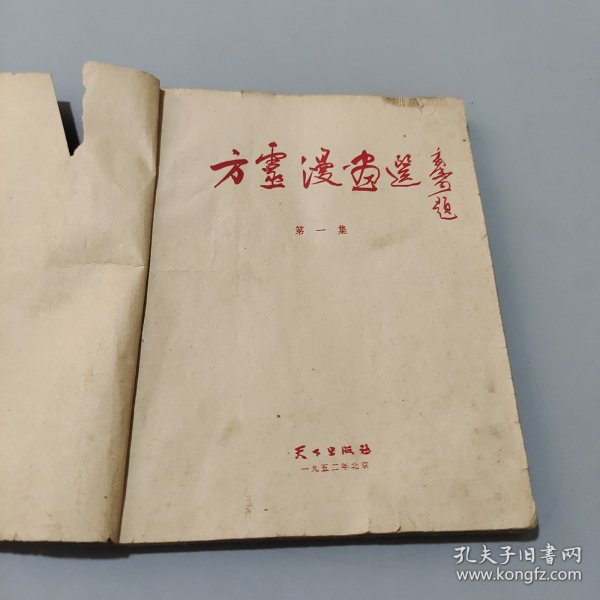 方靈漫画選
題
第一集
天下出版社
一九五二年北京
孔夫子旧书网
www.kongfz.com